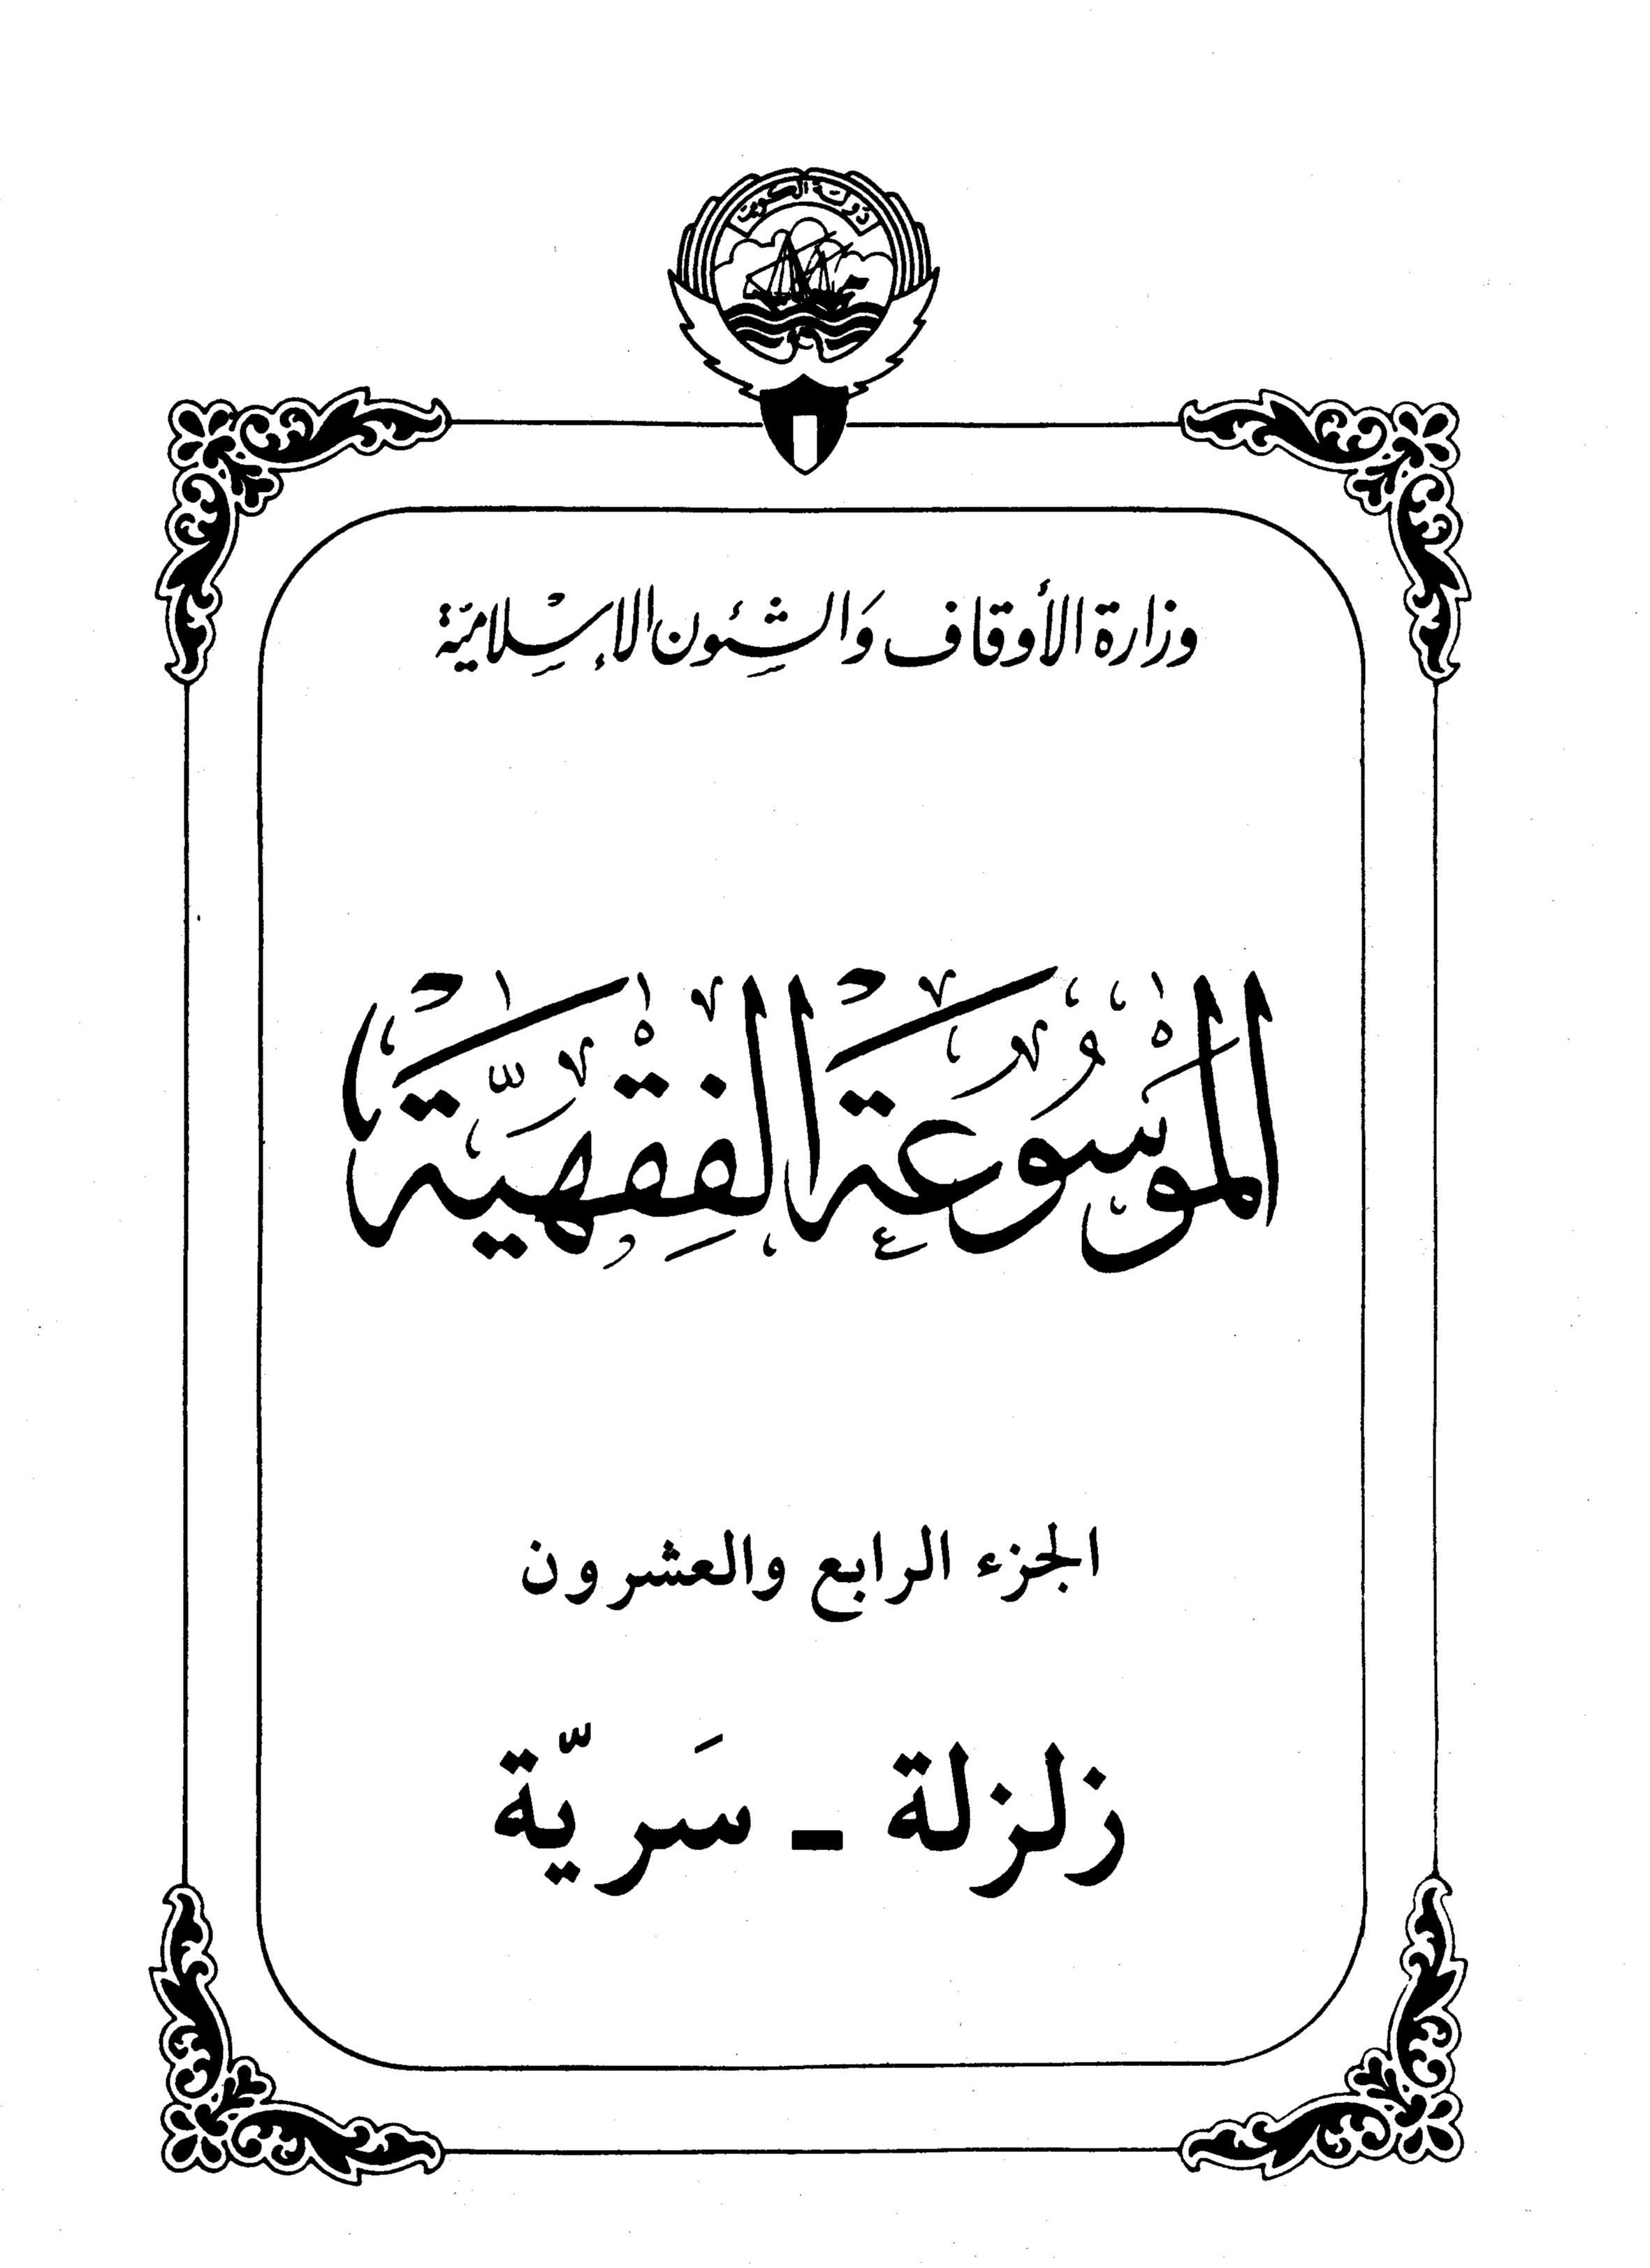 دولة الكويت
وزارة الأوقاف وَالشِئون الإسْلاميّة
الموسُوعَة الفِقهيَّة
الجزء الرابع والعشرون
زلزلة ـ سَريّة